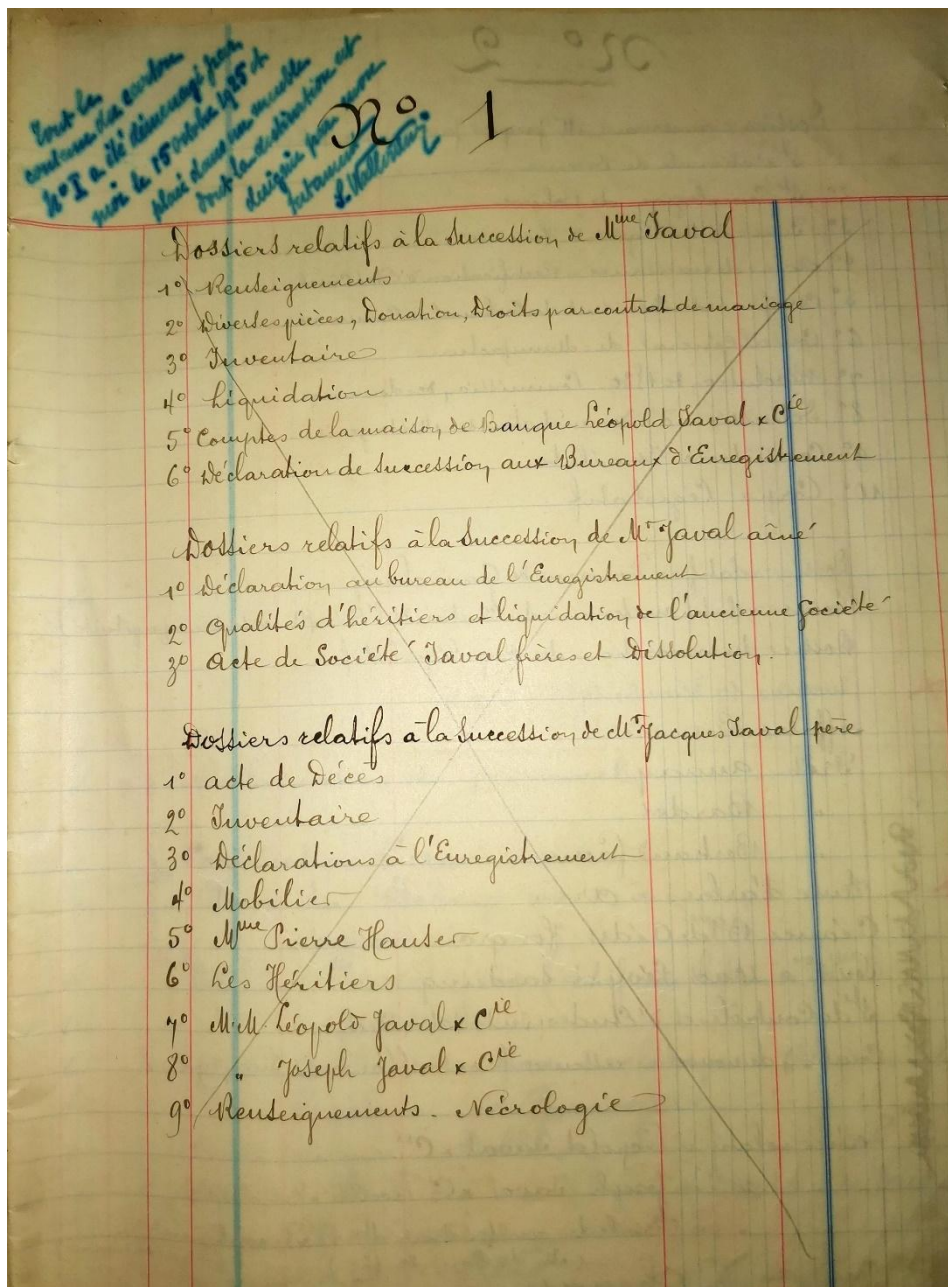 Tout le
contenu du carton
N° I a été déménagé par
moi le 15 octobre 1925 et
placé dans un meuble
dont la destination est
désignée par mon
testament
N° 1
Dossiers relatifs à la Succession de Mme Javal
1° Renseignements
2° Diverses pièces, Donation, Droits par contrat de mariage
3° Inventaire
4° Liquidation
5° Comptes de la maison de Banque Léopold Javal & Cie
6° Déclaration de Succession aux Bureaux d'Enregistrement
Dossiers relatifs à la Succession de Mr Javal aîné
1° Déclaration au bureau de l'Enregistrement
2° Qualités d'héritiers et liquidation de l'ancienne Société
3° Acte de Société Javal frères et Dissolution.
Dossiers relatifs à la Succession de Mr Jacques Javal père
1° acte de Décès
2° Inventaire
3° Déclarations à l'Enregistrement
4° Mobilier
5° Mme Pierre Hauser
6° Les Héritiers
7° M.M. Léopold Javal & Cie
8° " Joseph Javal & Cie
9° Renseignements - Nécrologie